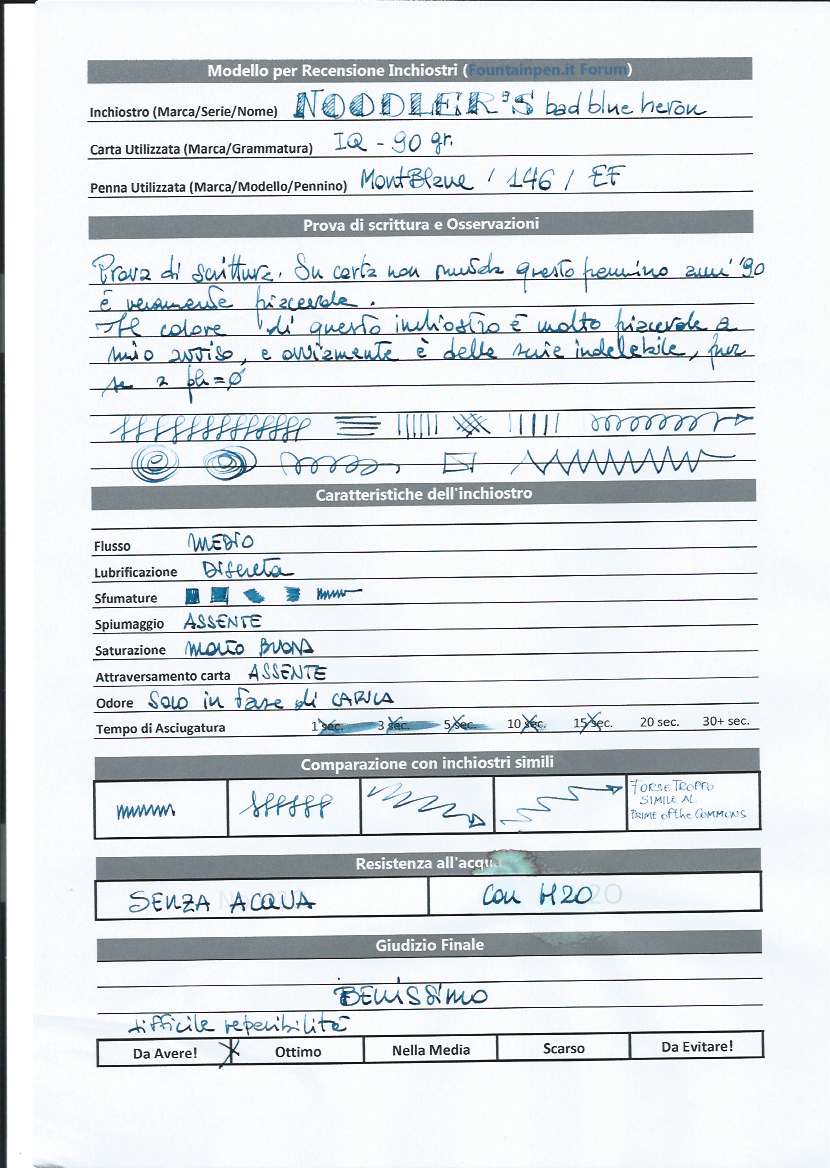 Modello per Recensione Inchiostri (Fountainpen.it Forum)
Inchiostro (Marca/Serie/Nome) NOODLER'S bad blue heron
Carta Utilizzata (Marca/Grammatura) IQ - 90 gr.
Penna Utilizzata (Marca/Modello/Pennino) MontBlanc / 146 / EF
Prova di scrittura e Osservazioni
Prova di scrittura. Su carta non questo pennino anni '90
è veramente piacevole.
Il colore di questo inchiostro è molto piacevole a
mio avviso, e ovviamente è della serie indelebile, pur
se a ph=0
Caratteristiche dell'inchiostro
Flusso MEDIO
Lubrificazione Discreta
Sfumature
Spiumaggio ASSENTE
Saturazione MOLTO BUONA
Attraversamento carta ASSENTE
Odore Solo in fase di CARICA
Tempo di Asciugatura 1 sec. 3 sec. 5 sec. 10 sec. 15 sec. 20 sec. 30+ sec.
Comparazione con inchiostri simili
FORSE TROPPO
SIMILE AL
PRIME of the COMMONS
Resistenza all'acqua
SENZA ACQUA Con H2O
Giudizio Finale
BENISSIMO
difficile reperibilità
Da Avere! Ottimo Nella Media Scarso Da Evitare!